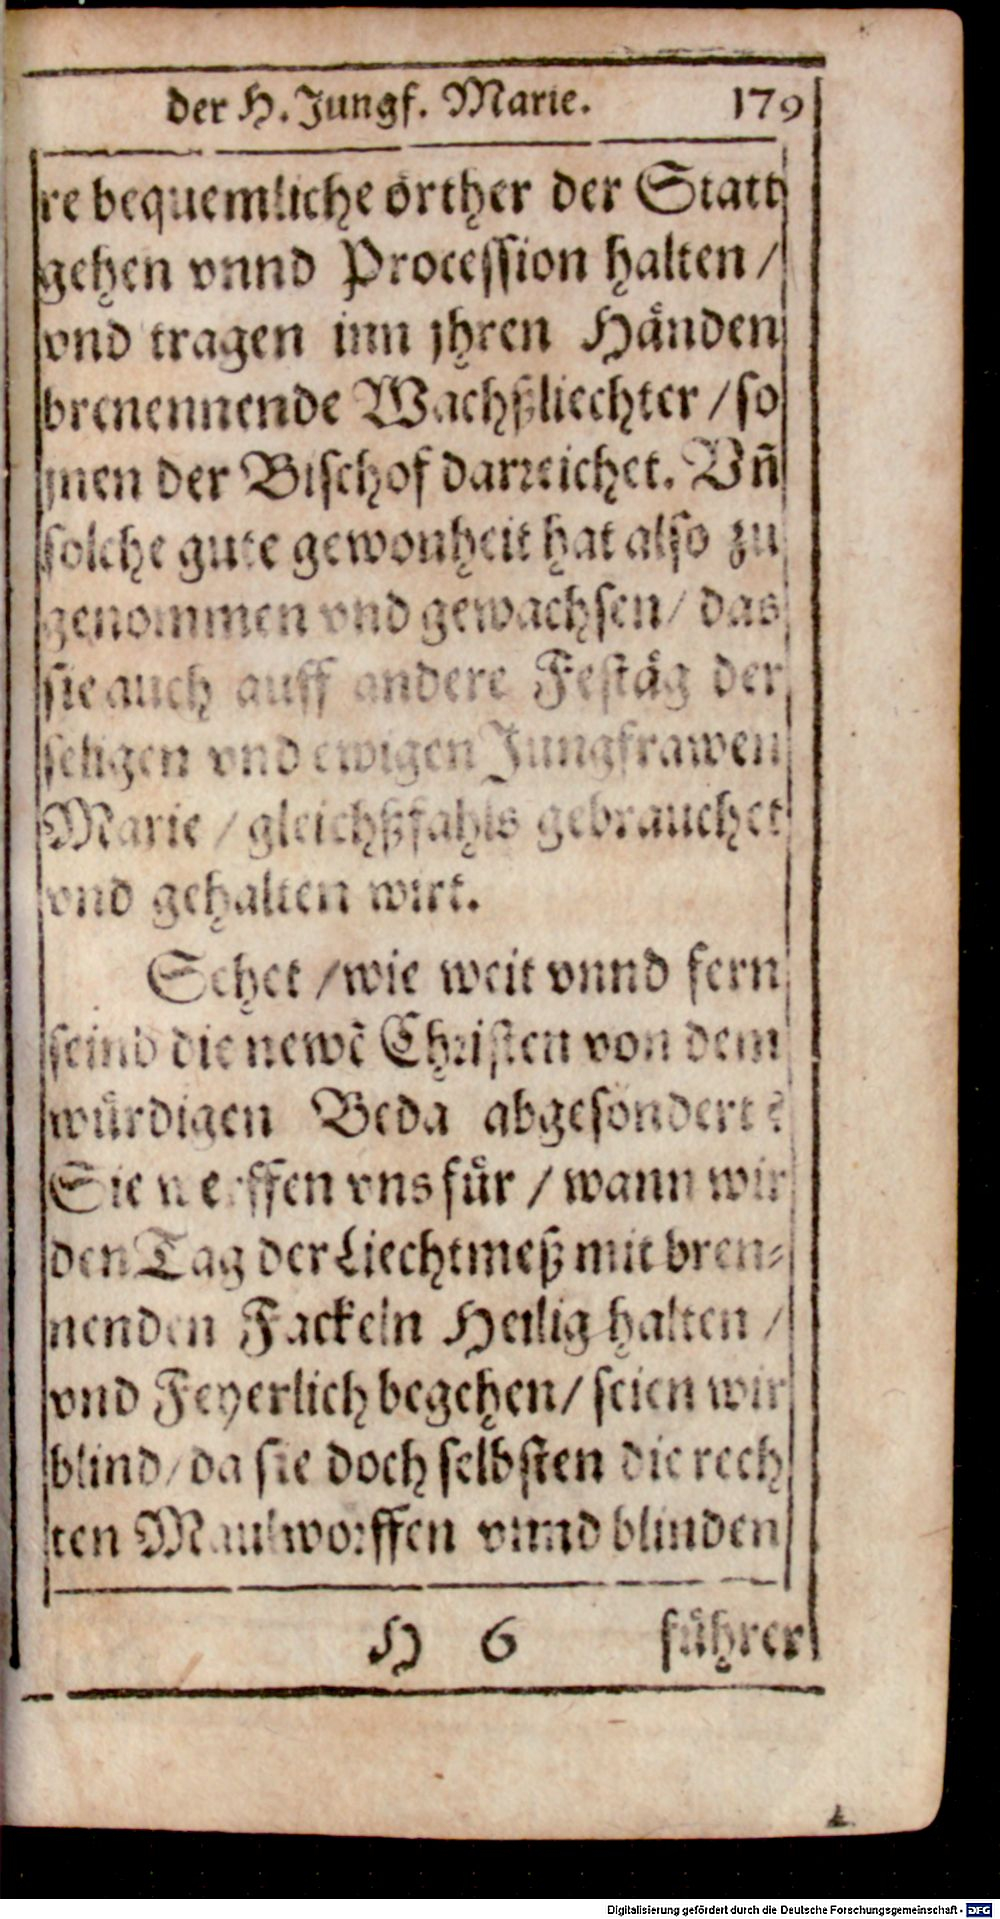 der H. Jungf. Marie. 179
re bequemliche örther der Statt
gehen vnnd Procession halten /
vnd tragen inn jhren Händen
brenennende Wachßliechter / so
jnen der Bischof darreichet. Vñ
solche gute gewonheit hat also zu
genommen vnd gewachsen / das
sie auch auff andere Festäg der
seligen vnd ewigen Jungfrawen
Marie / gleichßfahls gebrauchet
vnd gehalten wirt.
Sehet / wie weit vnnd fern
seind die newẽ Christen von dem
würdigen Beda abgesondert?
Sie werffen vns für / wann wir
den Tag der Liechtmeß mit bren-
nenden Fackeln Heilig halten /
vnd Feyerlich begehen / seien wir
blind / da sie doch selbsten die rech
ten Maulworffen vnnd blinden
H 6 führer
Digitalisierung gefördert durch die Deutsche Forschungsgemeinschaft - DFG